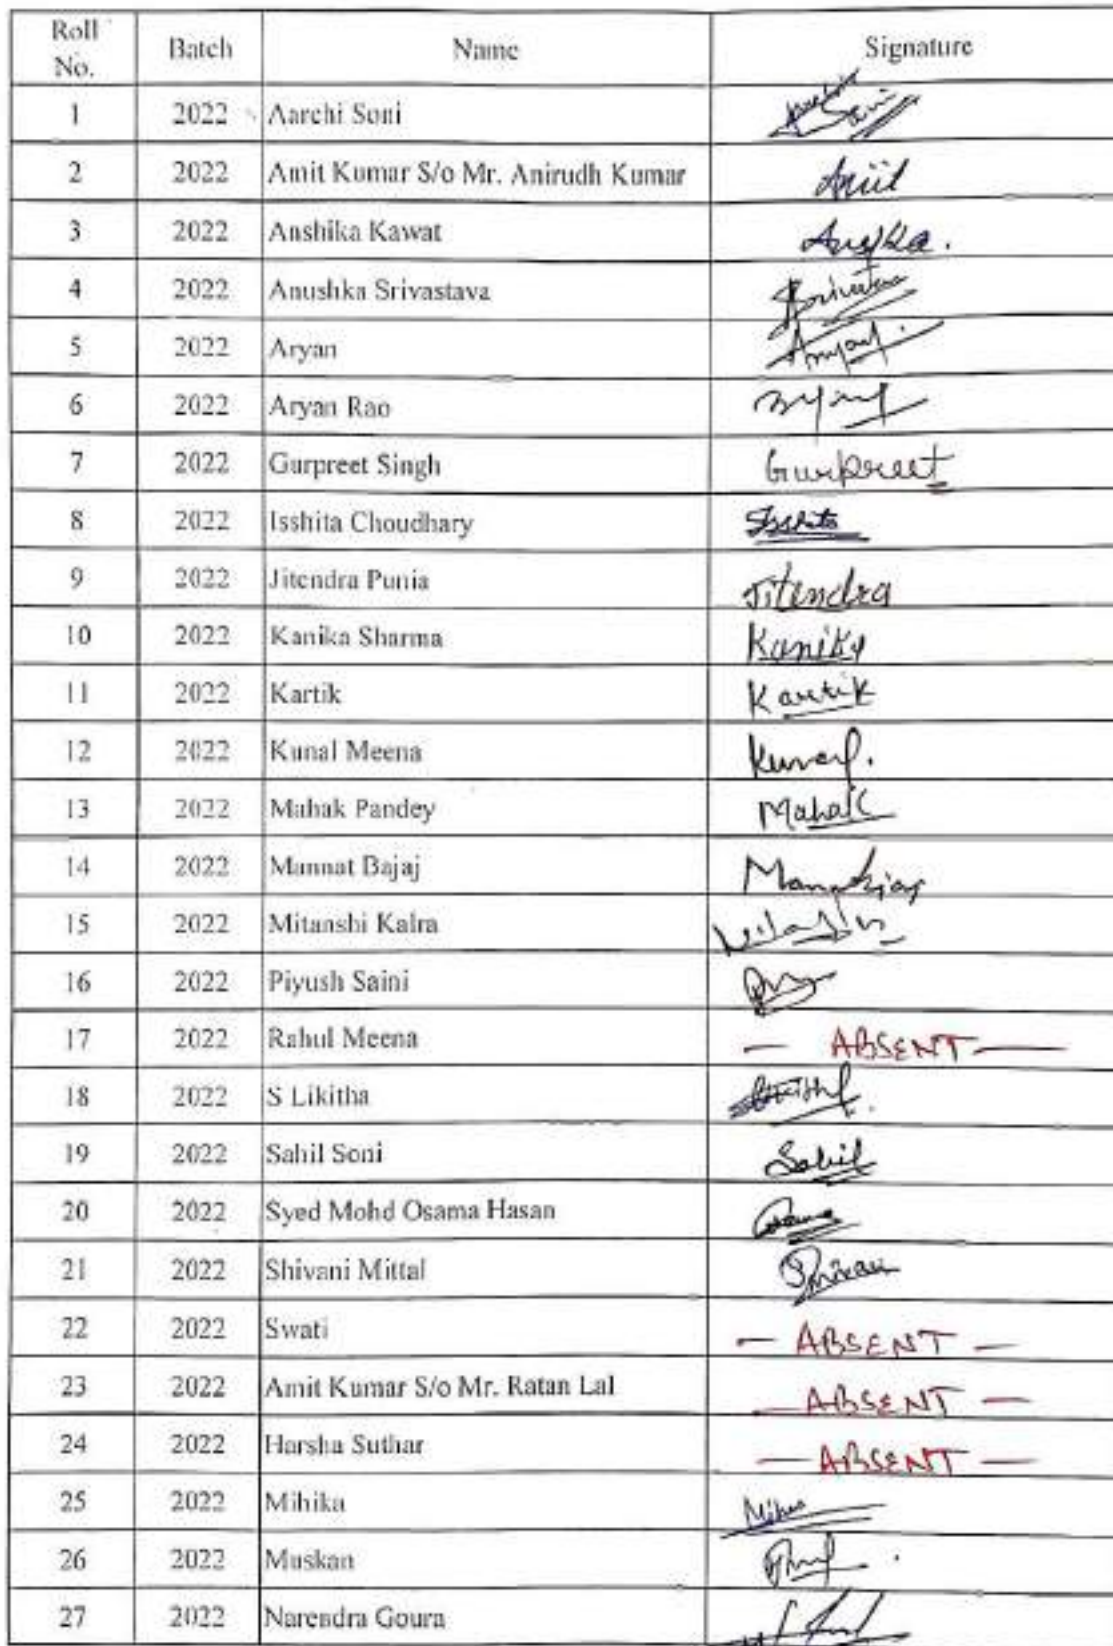 Roll No. Batch Name Signature
1 2022 Aarchi Soni Soni
2 2022 Amit Kumar S/o Mr. Anirudh Kumar
3 2022 Anshika Kawat
4 2022 Anushka Srivastava
5 2022 Aryan Aryan
6 2022 Aryan Rao
7 2022 Gurpreet Singh Gurpreet
8 2022 Isshita Choudhary Isshita
9 2022 Jitendra Punia Jitendra
10 2022 Kanika Sharma Kanika
11 2022 Kartik Kartik
12 2022 Kunal Meena Kunal.
13 2022 Mahak Pandey Mahak
14 2022 Mannat Bajaj
15 2022 Mitanshi Kalra
16 2022 Piyush Saini
17 2022 Rahul Meena — ABSENT —
18 2022 S Likitha
19 2022 Sahil Soni Sahil
20 2022 Syed Mohd Osama Hasan
21 2022 Shivani Mittal
22 2022 Swati — ABSENT —
23 2022 Amit Kumar S/o Mr. Ratan Lal — ABSENT —
24 2022 Harsha Suthar — ABSENT —
25 2022 Mihika
26 2022 Muskan
27 2022 Narendra Goura